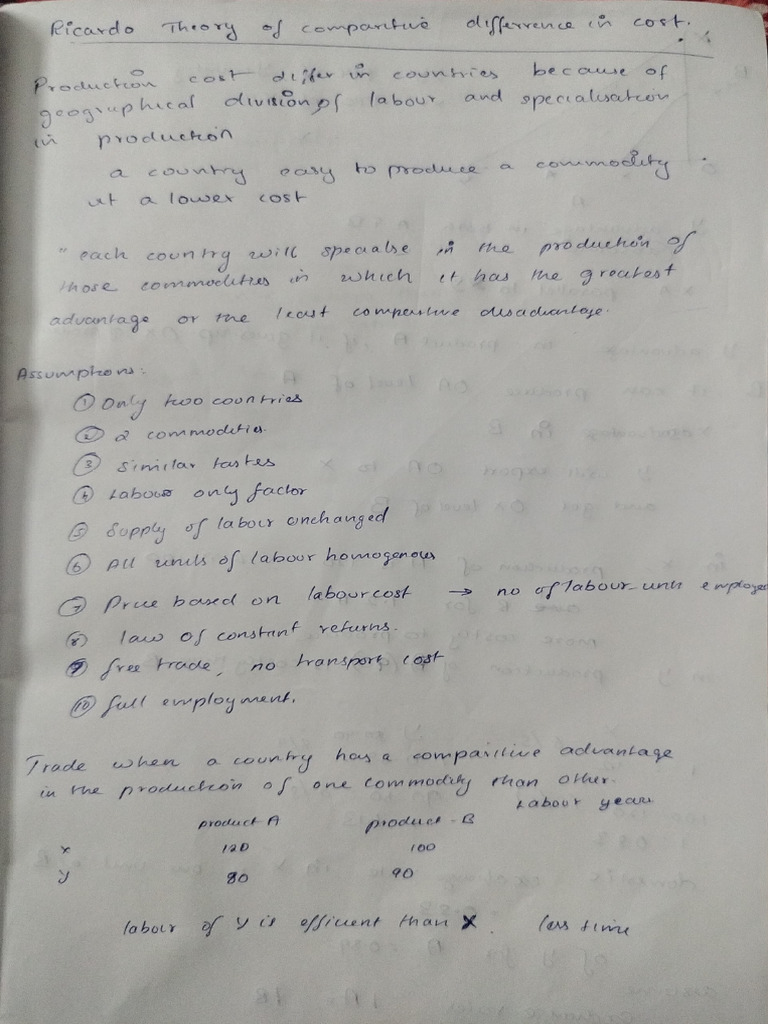 Ricardo Theory of comparitive differrence in cost.
Production cost differ in countries because of
geographical division of labour and specialisation
in production
a country easy to produce a commodity
at a lower cost
"each country will specialse in the production of
those commodities in which it has the greatest
advantage or the least comparitive disadvantage.
Assumptions:
① Only two countries
② 2 commodities.
③ Similar tastes
④ Labour only factor
⑤ Supply of labour unchanged
⑥ All units of labour homogenous
⑦ Price based on labour cost → no of labour unit employed
⑧ law of constant returns.
⑨ free trade, no transport cost
⑩ full employment.
Trade when a country has a comparitive advantage
in the production of one commodity than other.
Labour years
product A product - B
x 120 100
y 80 90
labour of y is efficent than X. less time